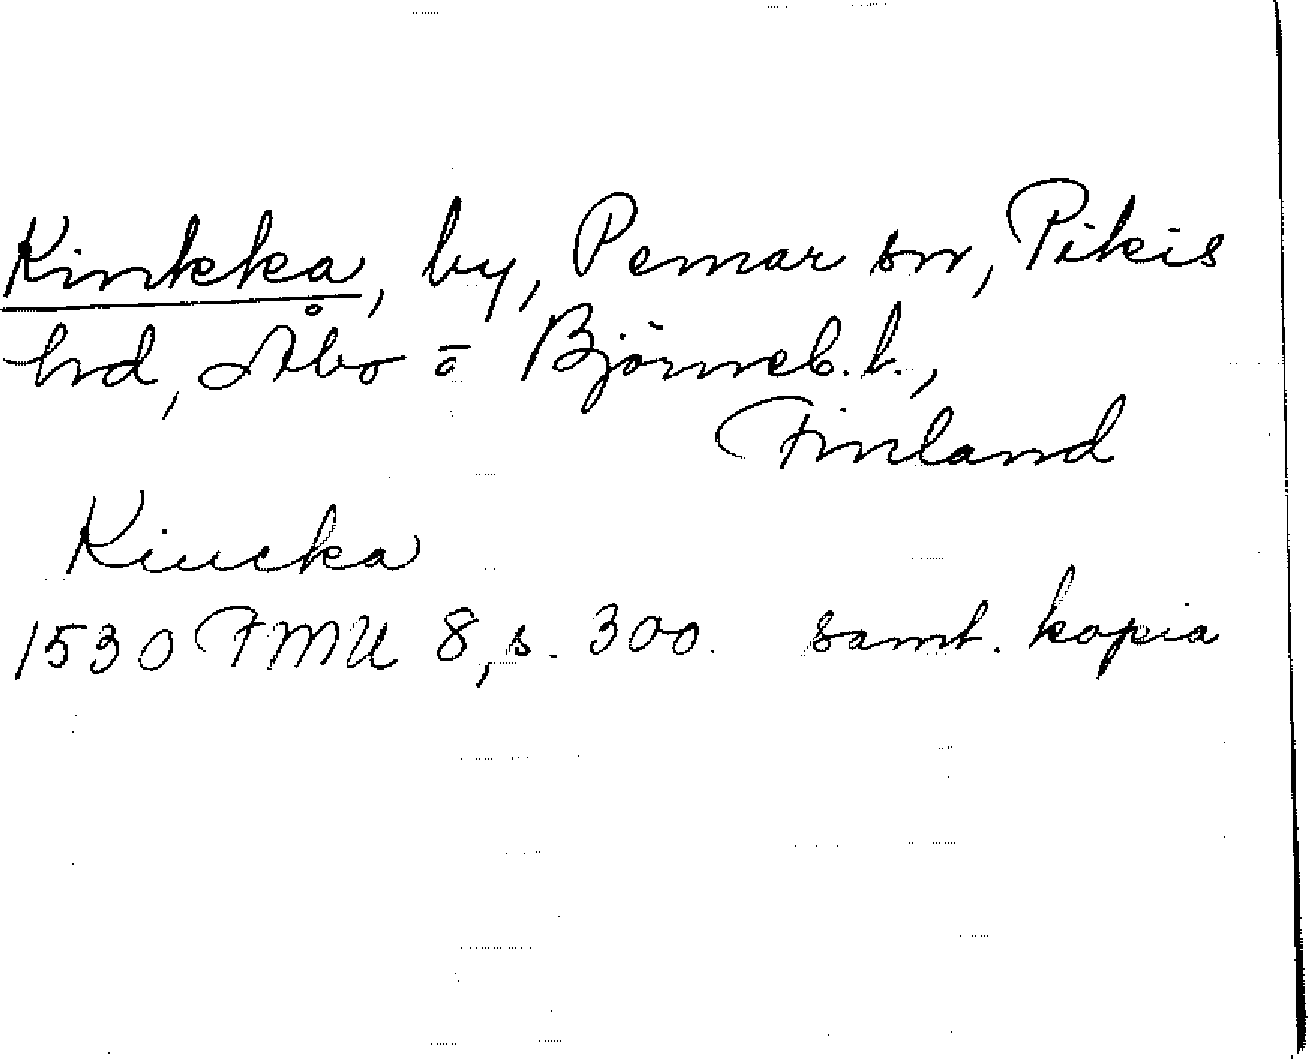 Kinkka, by, Pemar sn, Pikis
hrd, Åbo o Björneb. l.,
Finland
Kincka
1530 FMU 8, s. 300. samt. kopia